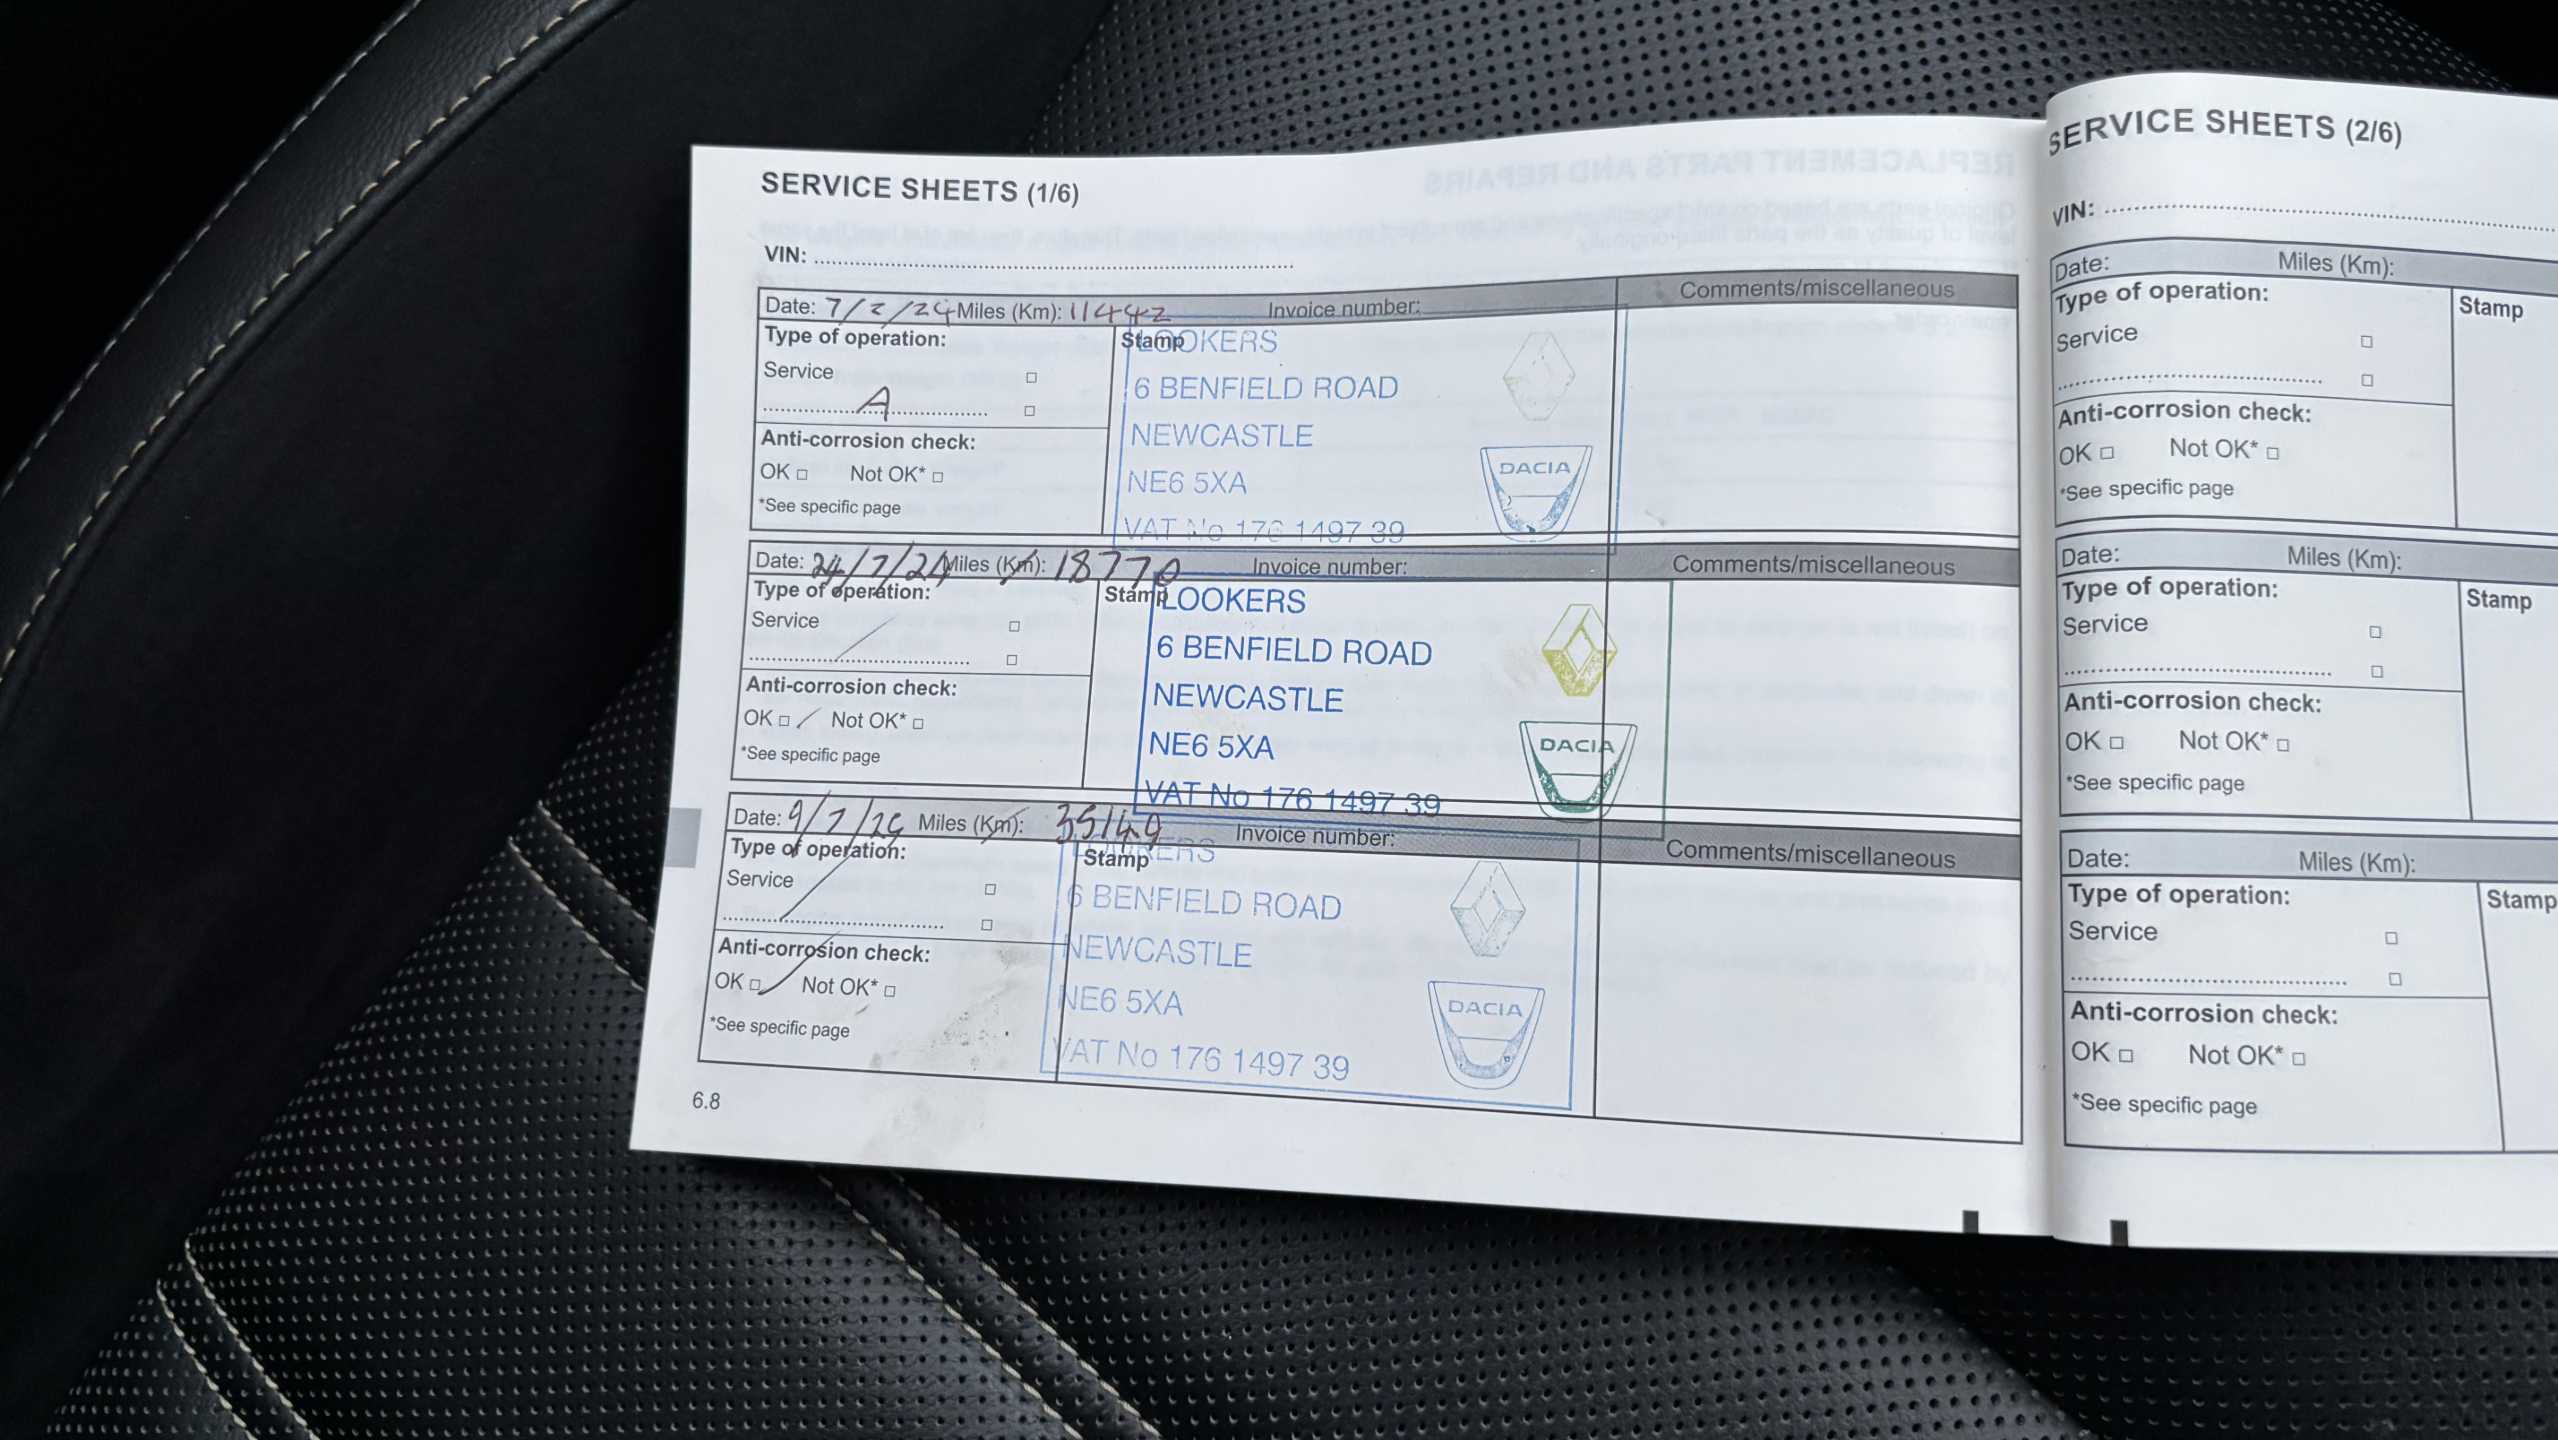 SERVICE SHEETS (1/6)
VIN:
Date: 7/2/24 Miles (Km): 11442 Invoice number: Comments/miscellaneous
Type of operation: Stamp
Service
A
Anti-corrosion check:
OK Not OK*
*See specific page
LOOKERS
6 BENFIELD ROAD
NEWCASTLE
NE6 5XA
VAT No 176 1497 39
DACIA
Date: 24/7/24 Miles (Km): 18770 Invoice number: Comments/miscellaneous
Type of operation: Stamp
Service
Anti-corrosion check:
OK Not OK*
*See specific page
LOOKERS
6 BENFIELD ROAD
NEWCASTLE
NE6 5XA
VAT No 176 1497 39
DACIA
Date: 9/7/25 Miles (Km): 35149 Invoice number: Comments/miscellaneous
Type of operation: Stamp
Service
Anti-corrosion check:
OK Not OK*
*See specific page
LOOKERS
6 BENFIELD ROAD
NEWCASTLE
NE6 5XA
VAT No 176 1497 39
DACIA
6.8
SERVICE SHEETS (2/6)
VIN:
Date: Miles (Km):
Type of operation: Stamp
Service
Anti-corrosion check:
OK Not OK*
*See specific page
Date: Miles (Km):
Type of operation: Stamp
Service
Anti-corrosion check:
OK Not OK*
*See specific page
Date: Miles (Km):
Type of operation: Stamp
Service
Anti-corrosion check:
OK Not OK*
*See specific page